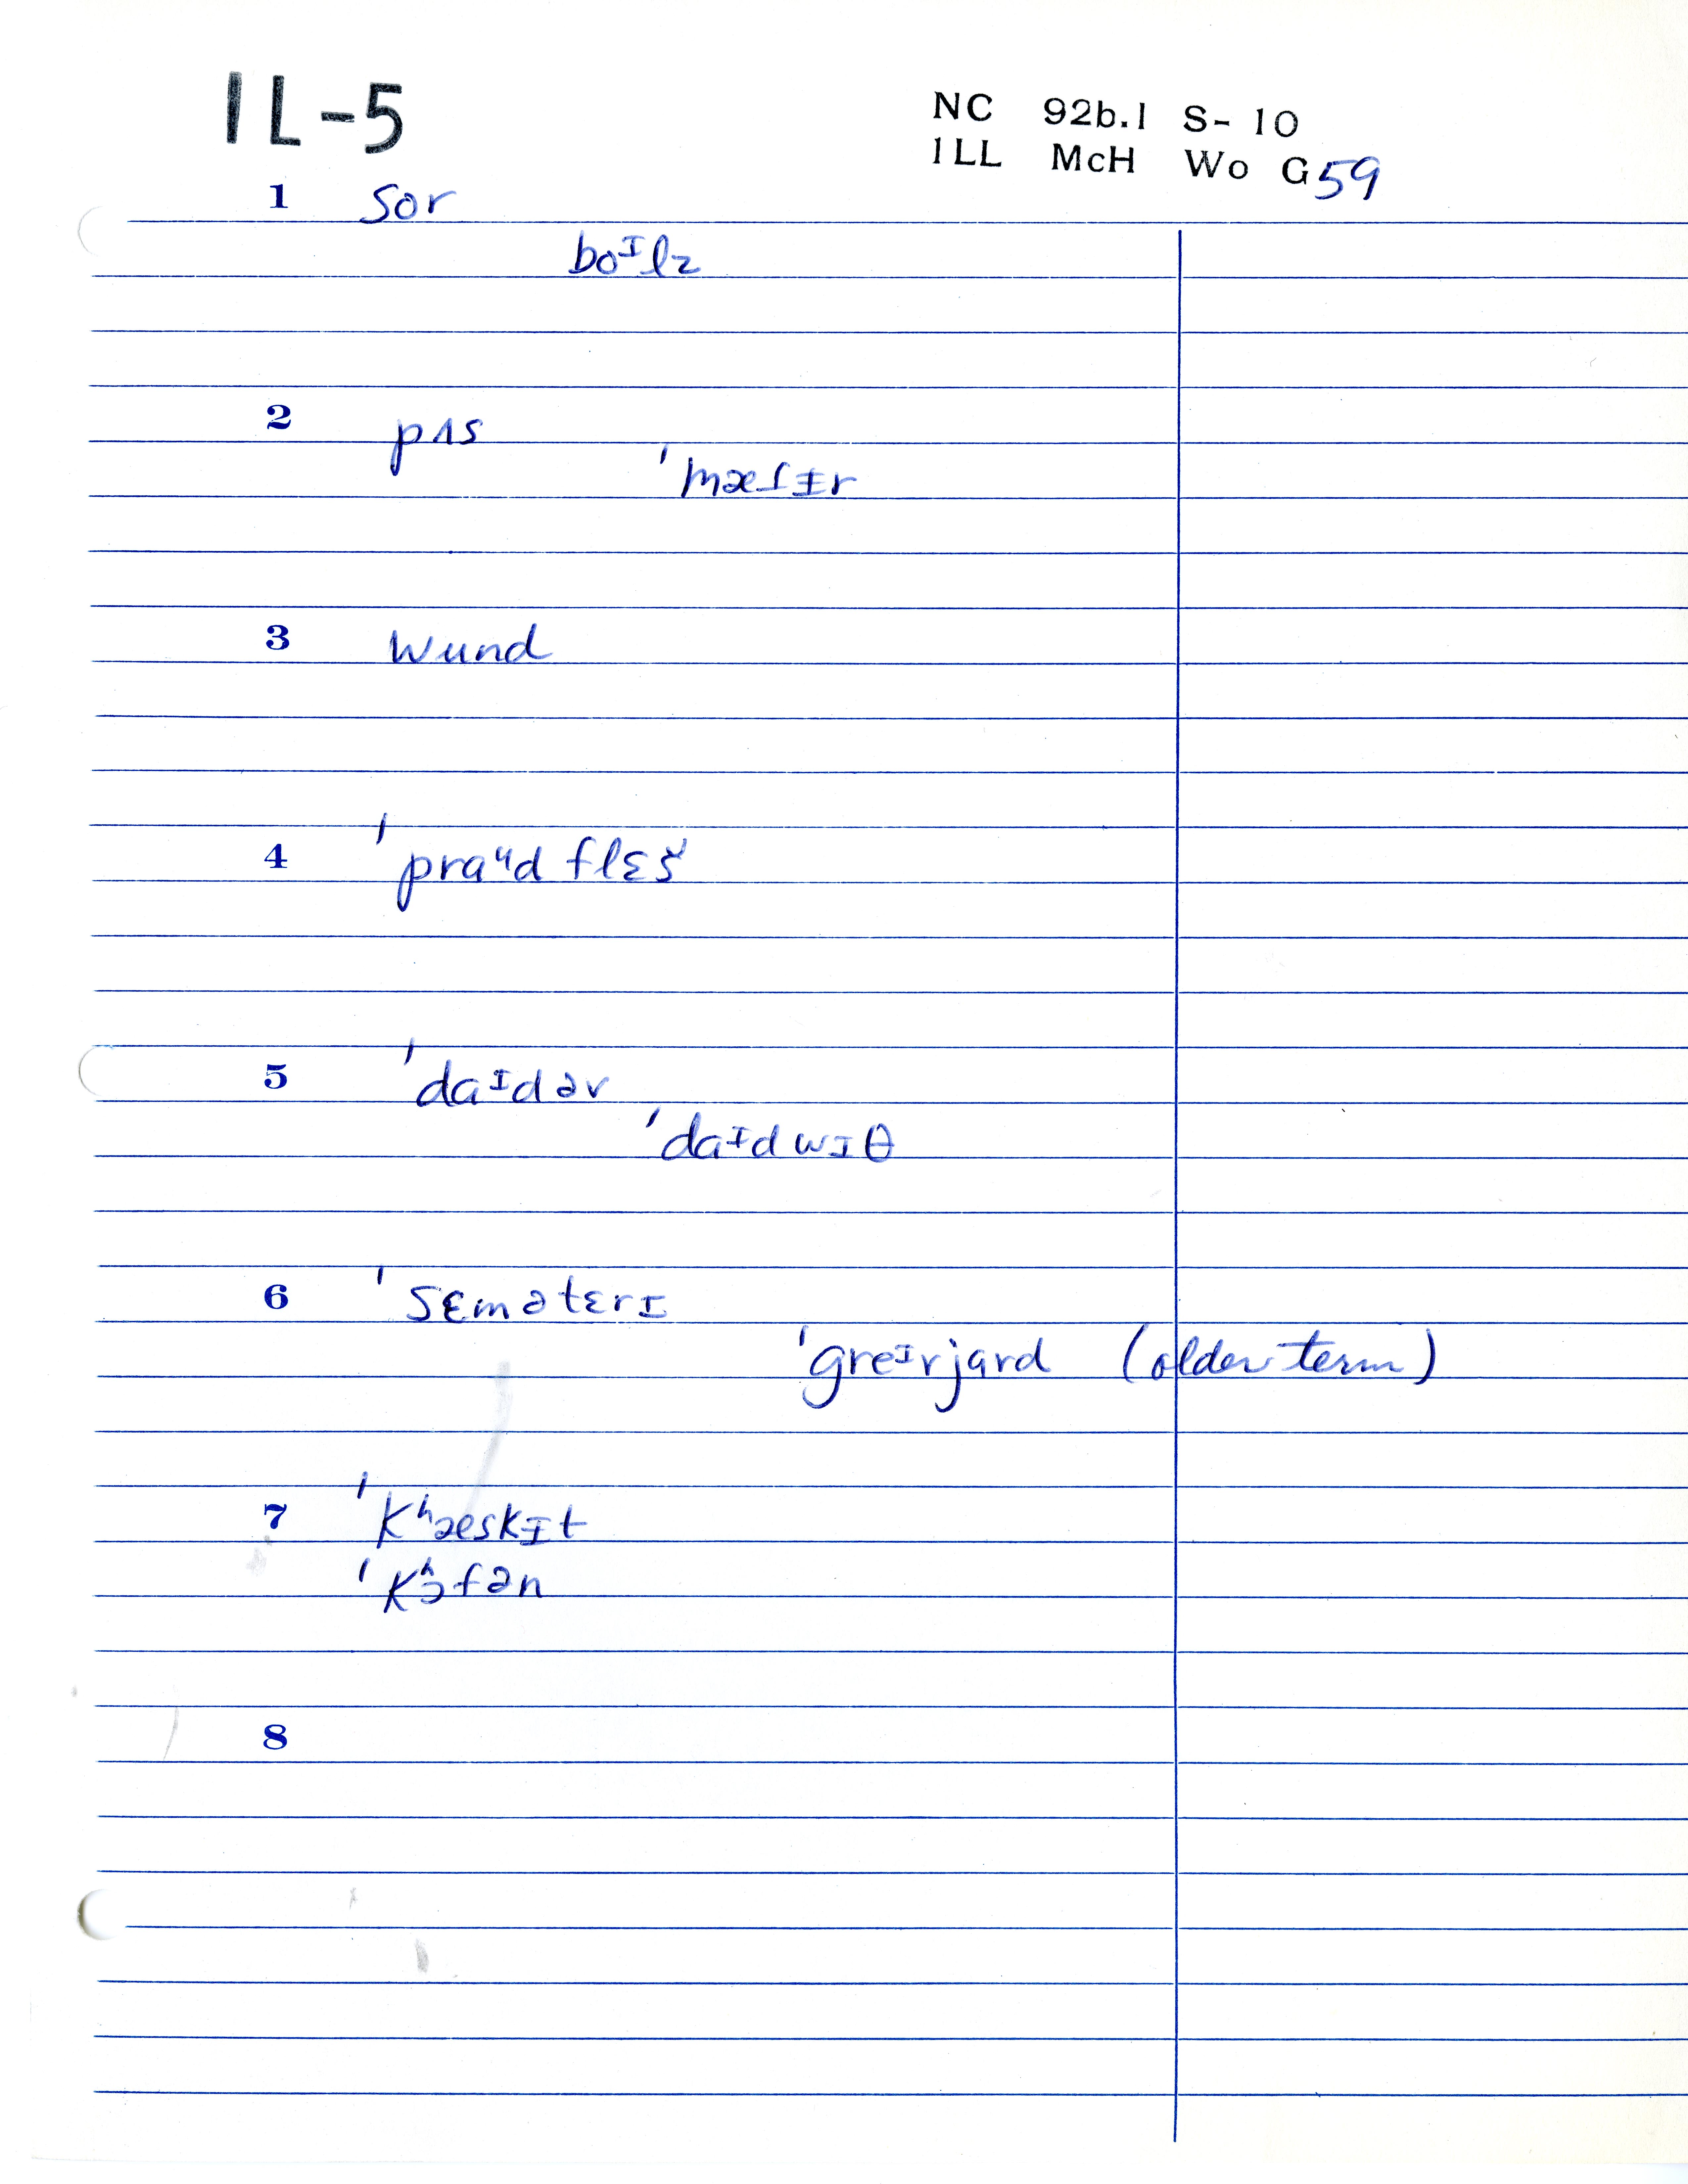 IL-5
NC 92b.1 S- 10
ILL McH Wo G59
1 sor
boᴵlz
2 pʌs
'mæſɪr
3 wund
4 'praᵘd flɛš
5 'daᴵdəv
'daᴵdwɪθ
6 'sɛmətɛrɪ
'greᴵvjɑrd (older term)
7 'kʰæskɪt
'kʰɔfən
8